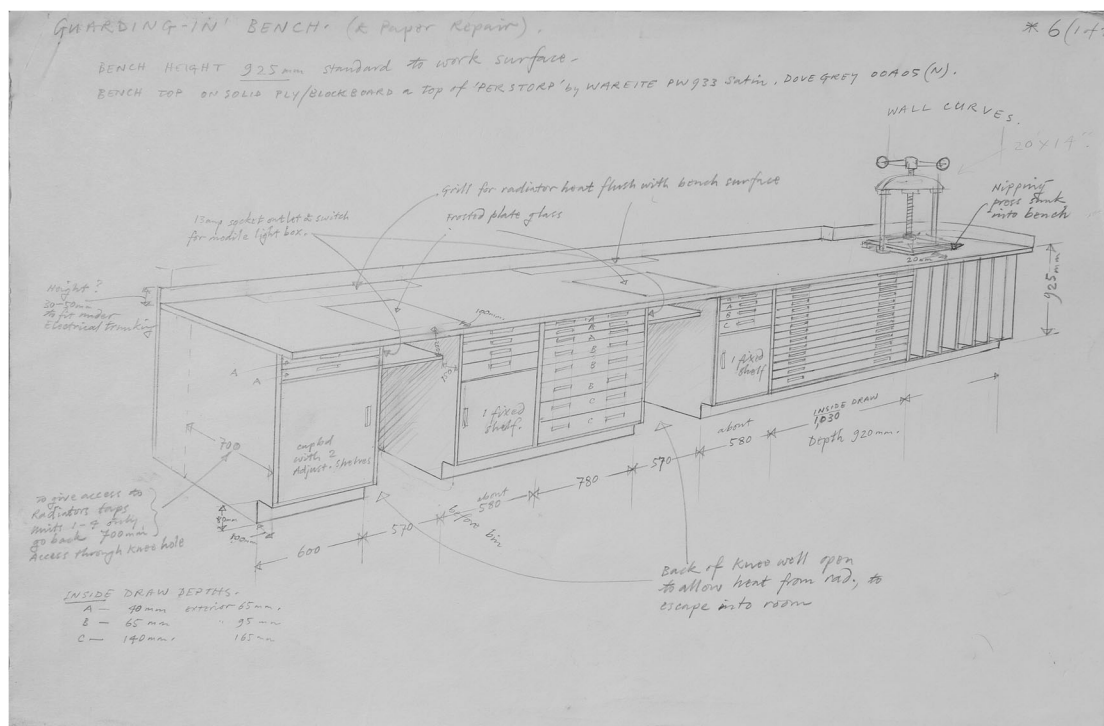 'GUARDING-IN' BENCH. (& Paper Repair).
* 6
BENCH HEIGHT 925mm standard to work surface.
BENCH TOP ON SOLID PLY/BLOCKBOARD a top of 'PERSTORP' by WAREITE PW933 Satin, DOVE GREY 00A05 (N).
WALL CURVES.
20"x14"
Grill for radiator heat flush with bench surface
Frosted plate glass
13 amp socket outlet & switch
for mobile light box.
Nipping
press sunk
into bench
20mm
925mm
Height?
30-50mm
to fit under
Electrical Trunking
100mm
150
A
A
A
A
A
B
B
B
C
C
A
A
B
C
1 fixed
shelf.
1 fixed
shelf
cupbd
with 2
Adjust. shelves
700
To give access to
Radiators taps
units 1-4 only
go back 700mm
Access through Knee hole
80mm
100mm
600
570
about
580
780
570
about
580
INSIDE DRAW
1,030
Depth 920mm.
bin
Back of Knee well open
to allow heat from rad, to
escape into room
INSIDE DRAW DEPTHS.
A — 40mm exterior 65mm.
B — 65mm " 95mm
C — 140mm. 165mm